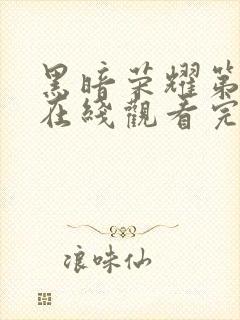 黑暗荣耀第
在綫觀看完
浪味仙